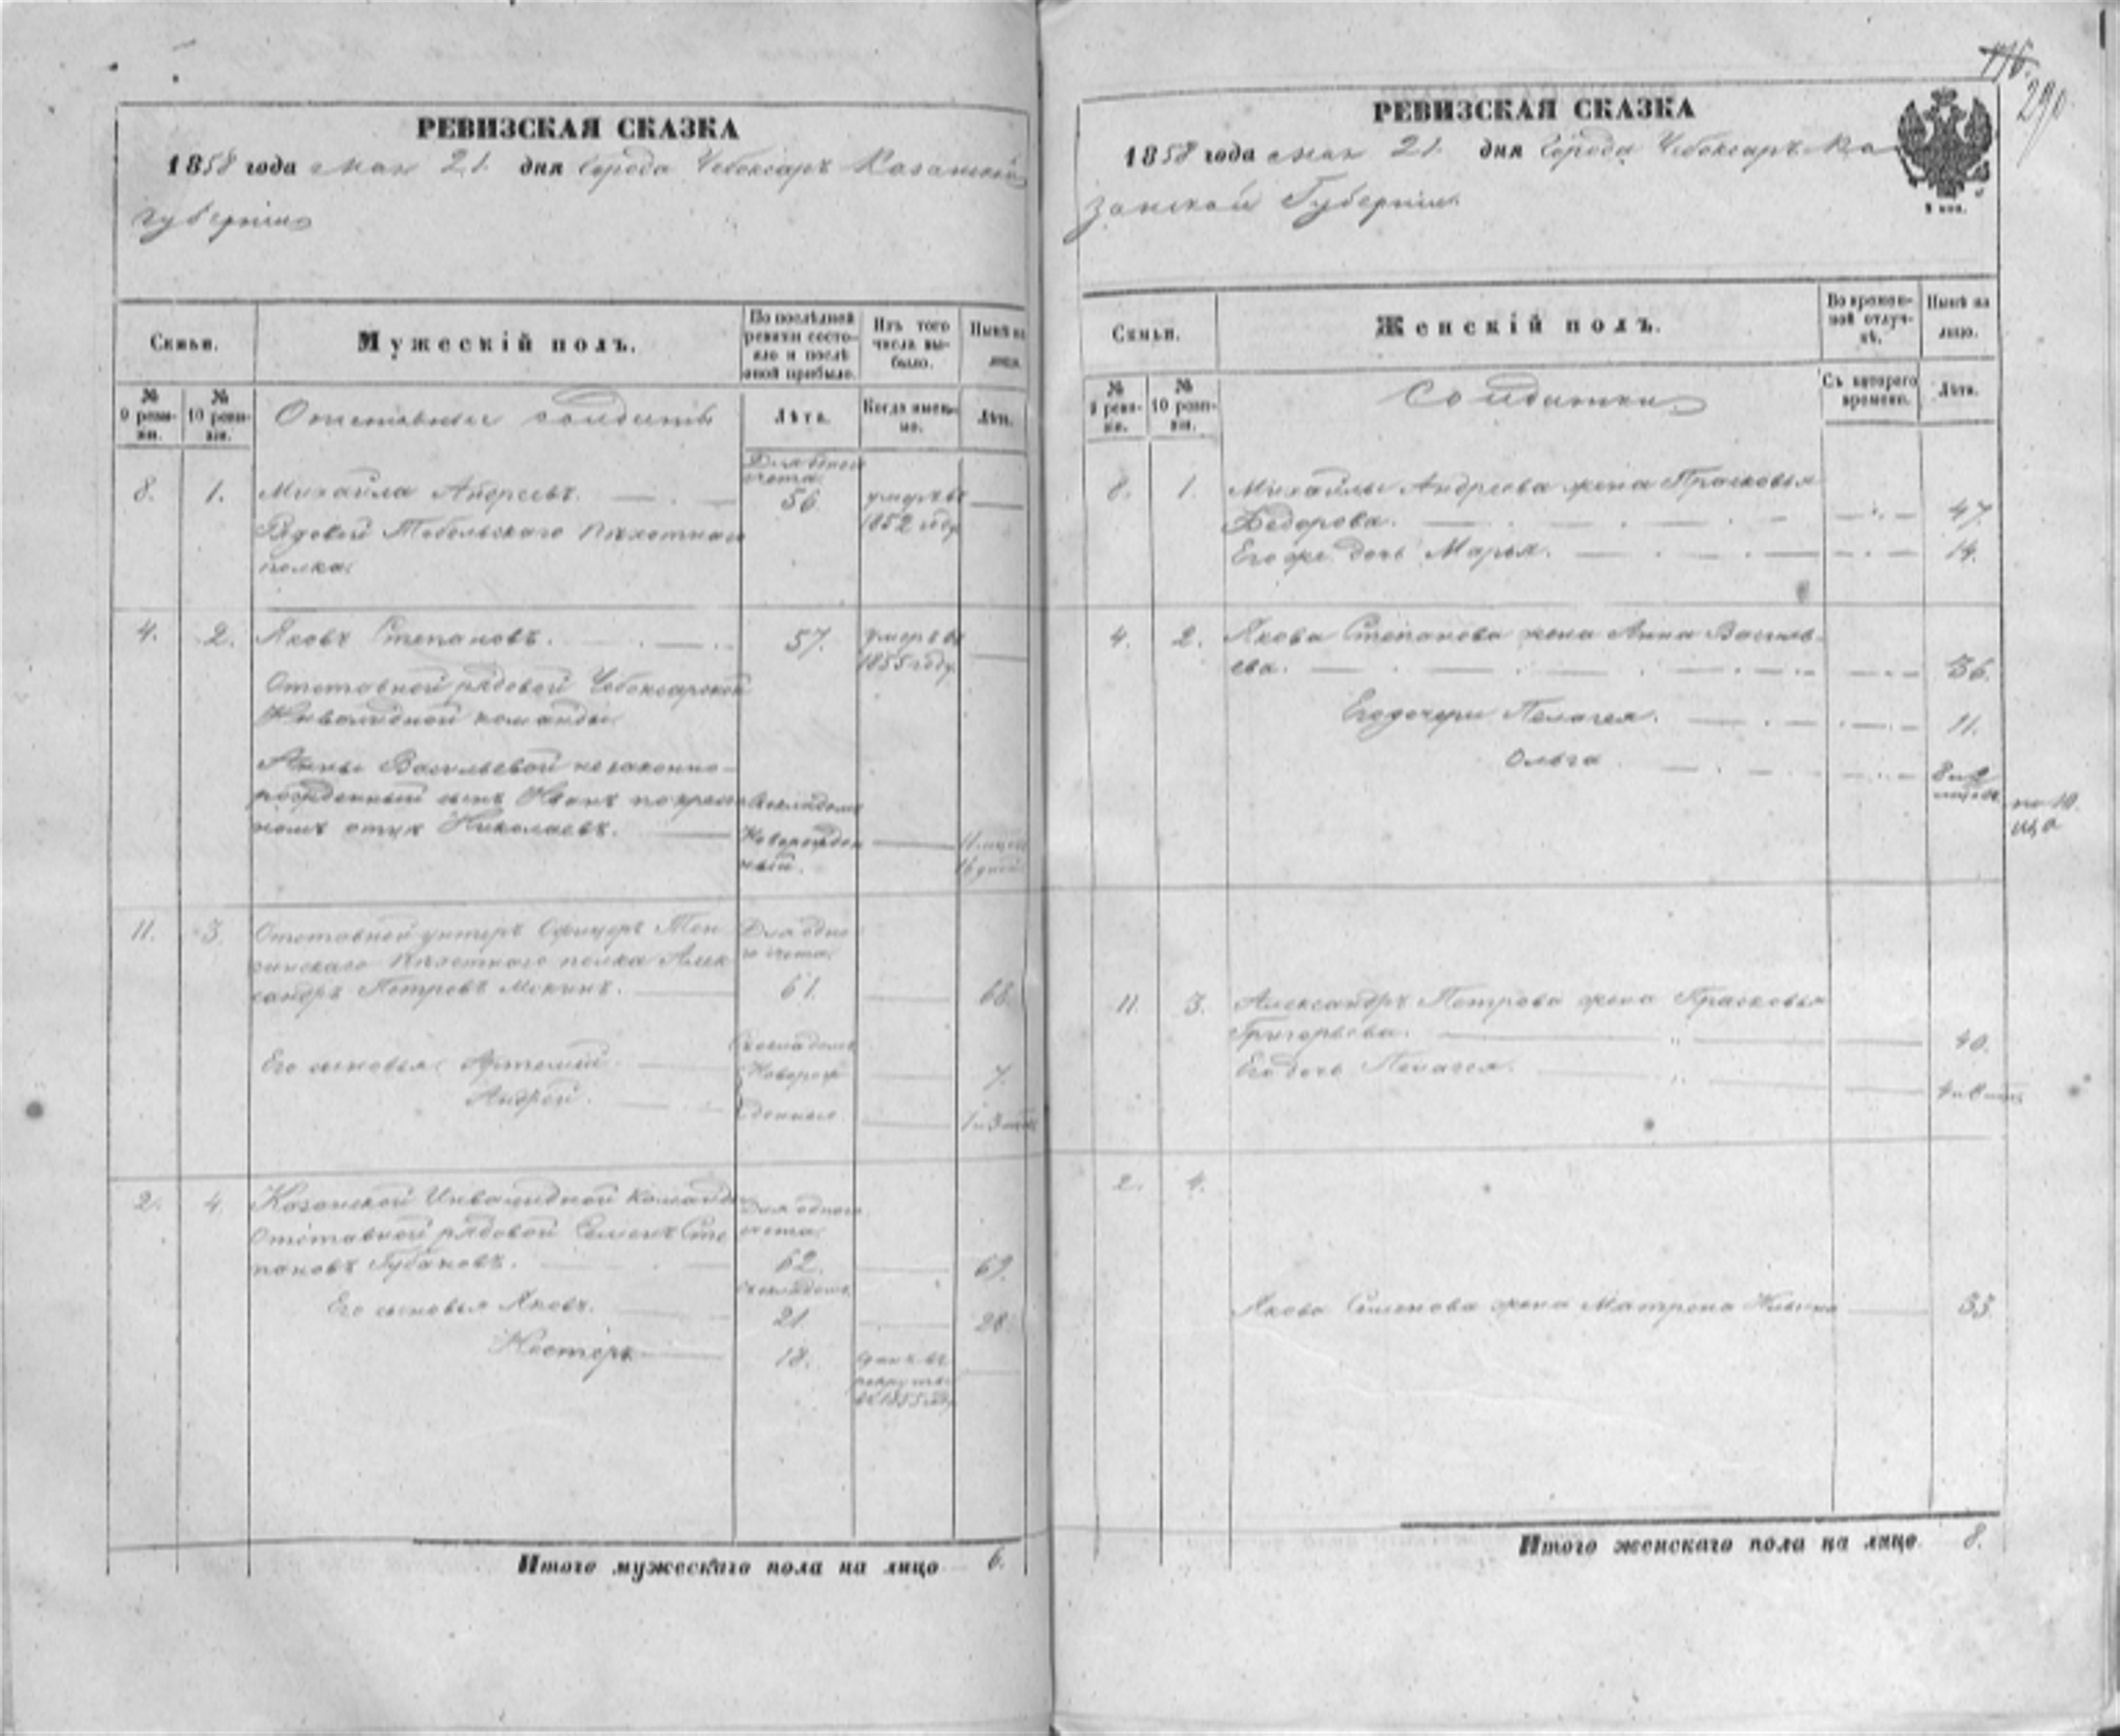 РЕВИЗСКАЯ СКАЗКА
1858 года мая 21. дня Города Чебоксаръ Казанской
губернiи
Семьи.
Мужескiй полъ.
По послѣдней ревизiи состояло и послѣ оной прибыло.
Изъ того числа выбыло.
Нынѣ на лицо.
№ 9 ревизiи.
№ 10 ревизiи.
Отставные солдаты
Лѣта.
Когда именно.
Лѣта.
Для одного
счета
8. 1. Михайла Андреевъ. 56 умеръ въ
Рядовой Тобольскаго пѣхотнаго 1852 году
полка.
4. 2. Яковъ Степановъ. 57. умеръ въ
1855 году
Отставной рядовой Чебоксарской
Инвалидной команды.
Анны Васильевой незаконно-
рожденный сынъ Иванъ по крест-
номъ отцѣ Николаевъ.
Новорожден
ный.
11. 3. Отставной унтеръ Офицеръ Тен
гинскаго пѣхотнаго полка Алек
сандръ Петровъ 61. 68.
Для одно
го счета.
Его сыновья: Артемий Новорож 7.
Андрей. денные 1 и 3
2. 4. Казанской Инвалидной Команды
Отставной рядовой Семенъ Сте
пановъ Губановъ. 62. 69.
Для одного
счета.
Его сыновья Яковъ. 21 28.
Несторъ 18. сданъ въ
рекруты
въ 1855 году
Итого мужескаго пола на лицо 6.
116.
290
РЕВИЗСКАЯ СКАЗКА
1858 года мая 21. дня Города Чебоксаръ Ка
занской Губернiи.
Семьи.
Женскiй полъ.
Во временной отлучкѣ.
Нынѣ на лицо.
№ 9 ревизiи.
№ 10 ревизiи.
Солдатки
Съ котораго времени.
Лѣта.
8. 1. Михайлы Андреева жена Прасковья
Федорова. 47.
Его же дочь Марья. 14.
4. 2. Якова Степанова жена Анна Василь-
ева. 36.
Его дочери Пелагея. 11.
Ольга
11. 3. Александръ Петрова жена Прасковья
Григорьева. 40.
Его дочь Пелагея.
2. 4.
Якова Семенова жена Матрена 33
Итого женскаго пола на лицо 8.